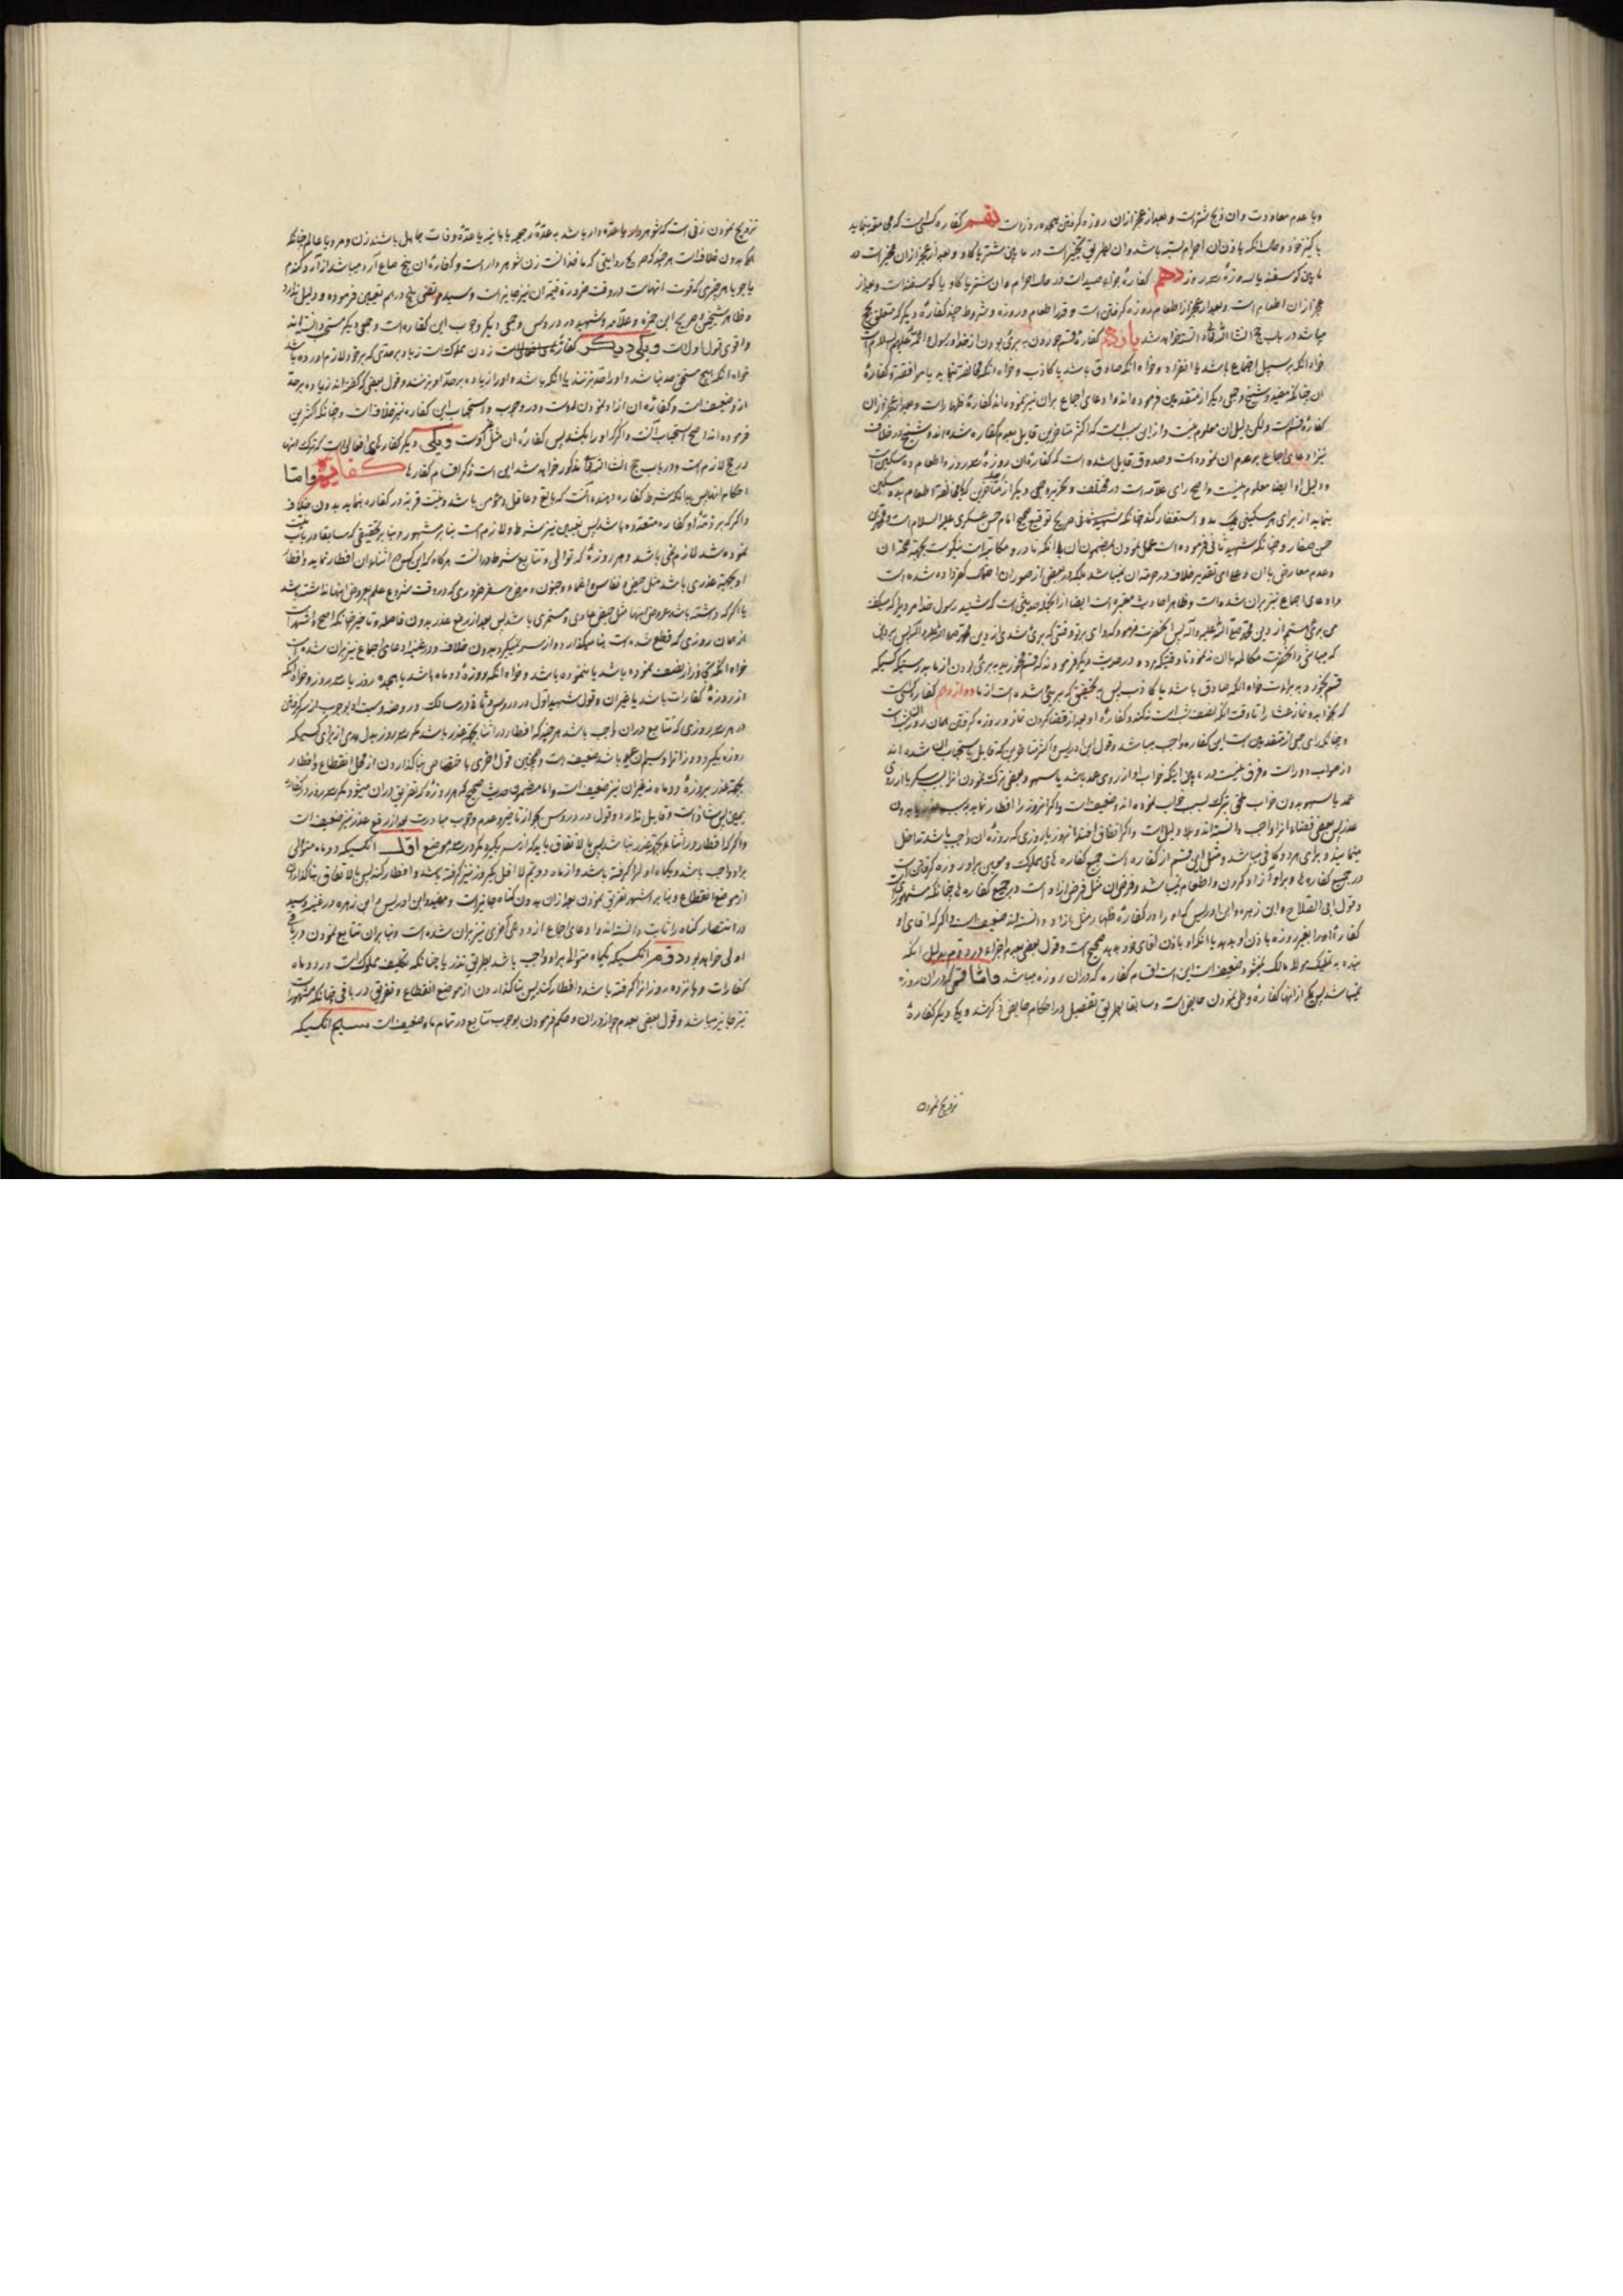 و با عدم معاودت و ان ذبح شتر است و بعد از عجز از ان روزه گرفتن هجده روز است نهم کفاره کسی است که جماع نماید
با کنیز خود و حال انکه باذن ان احرام بسته باشد و ان بطریق تخییر است در ما بین شتر یا کاو و بعد از عجز از ان مخیر است در
ما بین کوسفند یا سه روزه سه روز دهم کفاره جزاء صید است در حال احرام و ان شتر یا کاو یا کوسفند است و بعد از
عجز از ان اطعام است و بعد از عجز از اطعام روزه گرفتن است و قدر اطعام و روزه و شروط چند کفارهٔ دیگر که متعلق بحج
میباشد در باب حج انشاء الله تعالی دانسته خواهد شد یازدهم کفاره قسم خوردن به بری بودن از خدا و رسول و ائمه علیهم السلام است
خواه انکه بر سبیل اجتماع باشد یا انفراد و خواه انکه صادق باشد یا کاذب و خواه انکه مخالفت نماید یا موافقت و کفارهٔ
ان چنانکه مفید و شیخ و جمعی دیگر از متقدمین فرموده اند و ادعای اجماع بران نیز نموده اند کفارهٔ ظهار است و بعد از عجز از ان
کفارهٔ قسم است ولکن دلیل ان معلوم نیست و از این سبب است که اکثر متاخرین قایل بعدم کفاره شده اند و شیخ در خلاف
نیز ادعای اجماع بر عدم ان نموده است و صدوق قایل شده است که کفاره ان روزهٔ سه روز و اطعام ده مسکین است
و دلیل او ایضا معلوم نیست و اصح رای علامه است در مختلف و تحریر و جمعی دیگر از متاخرین که با مخالفة اطعام بده مسکین
بنماید از برای هر مسکینی یک مد و استغفار کند چنانکه در صریح توقیع صحیح امام حسن عسکری علیه السلام است بمحمد بن
حسن صفار و چنانکه شهید ثانی فرموده است عمل نمودن بمضمون ان با انکه نادر و مکاتبه است نیکوست بجهة صحة ان
و عدم معارض با ان و دعوای تقدیر خلاف در حرمة ان نمیباشد بلکه در بعضی از صور ان احتمال کفر داده شده است
و ادعای اجماع نیز بران شده است و ظاهر احادیث معتبره است ایضا از انجمله حدیثی است که شنید رسول خدا مردیرا که میگفت
من بری هستم از دین محمد صلی الله علیه واله پس انحضرت فرمود که وای بر تو وقتی که بری شدی از دین محمد صلی الله علیه واله پس بر دین
که میباشی و انحضرت مکالمه با ان ننمود تا وقتیکه مرد و در حدیث دیگر فرمودند که قسم مخورید به بری بودن از ما بدرستیکه کسیکه
قسم بخورد به براءت خواه انکه صادق باشد یا کاذب پس بتحقیق که بری شده است از ما دوازدهم کفاره کسی است
که بخوابد و نماز عشا را تا وقت انکه نصف شب است نکند و کفارهٔ او بعد از قضا کردن نماز روزه گرفتن همان روز است
و چنانکه رای جمعی از متقدمین است این کفاره واجب میباشد و قول ابن ادریس و اکثر متاخرین که قایل باستحباب ان شده اند
از صواب دور است و فرق نیست در ما بین اینکه خواب او از روی عمد باشد یا سهو و بعضی ترک نمودن انرا بسبب سکر یا از روی
عمد یا سهو بدون خواب ملحق بترک بسبب خواب نموده اند و ضعیف است و اگر انروز را افطار نماید بدون
عذر پس بعضی قضاء انرا واجب دانسته اند و بلا دلیل است و اگر اتفاق افتد انروز با روزی که روزه ان واجب باشد تداخل
مینماید و برای هر دو کافی میباشد و مثل این قسم از کفاره است جمیع کفاره های مملوک و معین بر او روزه گرفتن است
در جمیع کفاره ها و بر او آزاد کردن و اطعام نمیباشد و فرض ان مثل فرض ازاد است در جمیع کفاره ها چنانکه مشهور است
و قول ابی الصلاح و ابن زهره و ابن ادریس که ماه را در کفارهٔ ظهار مثل ازاد دانسته اند ضعیف است و اگر که اقای او
کفارهٔ او را بغیر روزه باذن او بدهد یا انکه او باذن اقای خود بدهد صحیح است و قول بعضی بعدم اجزاء در دوم بدلیل انکه
بنده به تملیک مولا مالک نمیشود ضعیف است این است اقسام کفاره که دران روزه میباشد و اما قسمی که دران روزه
نمیباشد پس یکی از انها کفارهٔ وطی نمودن حایض است و سابقا بطریق تفصیل در احکام حایض ذکر شد و یکی دیگر کفارهٔ
تزویج نمودن
تزویج نمودن زنی است که شوهردار یا عده دار باشد به عدهٔ رجعیه یا باینه یا عدهٔ وفات جاهل باشند زن و مرد یا عالم چنانکه
بدون خلاف است هر چند که صریح روایتی که ماخذ انست زن شوهردار است و کفارهٔ ان پنج صاع آرد میباشد از آرد گندم
یا جو یا هر چیزی که قوت انهاست در وقت ضرورة قیمة ان نیز جایز است و سید مرتضی پنج درهم تعیین فرموده و دلیل ندارد
و ظاهر شیخین و صریح ابن حمزه و علامه و شهید در دروس و جمعی دیگر وجوب این کفاره است و جمعی دیگر مستحب دانسته اند
و اقوی قول اول است و یکی دیگر کفارهٔ زدن مملوک است زیاد بر حدی که بر خود لازم اورده باشد
خواه انکه هیچ مستحق حد نباشد و او را حد بزنند یا انکه باشد و او را زیاده بر حد او بزنند و قول بعضی که گفته اند زیاده بر حد
ازاد ضعیف است و کفارهٔ ان ازاد نمودن اوست و در وجوب و استحباب این کفاره نیز خلاف است و چنانکه اکثرین
فرموده اند اصح استحباب آنست و اگر که او را بکشد پس کفارهٔ ان مثل حر است و یکی دیگر کفاره های افعالی است که ترک انها
در حج لازم است و در باب حج انشاء الله تعالی مذکور خواهد شد این است ذکر اقسام کفاره ها کفایة و اما
احکام انها پس بدانکه شرط کفاره دهنده آنست که بالغ و عاقل و مؤمن باشد و نیت قربة در کفاره بنماید بدون خلاف
و اگر که بر ذمهٔ او کفاره متعدده باشد پس تعیین نیز شرط و لازم است بنا بر مشهور و بنا بر تحقیقی که سابقا در باب نیت
نموده شد لازم نمی باشد و هر روزهٔ که توالی و تتابع شرط دران است هرگاه که این کس در اثناء ان افطار نماید و افطار
او بجهة عذری باشد مثل حیض و نفاس و اغماء و جنون و مرض و سفر ضروری که در وقت شروع علم بعروض انها نداشته باشد
یا اگر که داشته باشد عروض انها مثل حیض عادی و مستمری باشد پس بعد از رفع عذر بدون فاصله و تاخیر چنانکه اصح و اشهر است
از همان روزی که قطع شده است بنا میگذارد و از سر نمیگیرد بدون خلاف و در غنیه ادعای اجماع نیز بران شده است
خواه انکه تجاوز از نصف نموده باشد یا ننموده باشد و خواه انکه روزهٔ دو ماه باشد یا هجده روز یا سه روز و خواه انکه
از روزهٔ کفارات باشد یا غیر ان و قول شهید اول در دروس و ثانی در مسالک و روضه و سید بوجوب از سر گرفتن
در هر سه روزی که تتابع دران واجب باشد هر چند که افطار در اثنا بجهة عذر باشد مگر سه روز بدل هدی از برای کسیکه
روزه بگیرد دو روز انرا و سیم ان عید باشد ضعیف است و همچنین قول اخری باختصاص بنا گذاردن از محل انقطاع و افطار
بجهة عذر بروزهٔ دو ماه نه غیر ان نیز ضعیف است و اما مضمون حدیث صحیح که هر روزه که تفریق دران میشود مگر سه روز در کفارهٔ
یمین پس شاذ است و قایل ندارد و قول در دروس بجواز تاخیر و عدم وجوب مبادرت بعد از رفع عذر نیز ضعیف است
و اگر که افطار در اثناء بجهة عذر نباشد پس بالاتفاق باید که از سر بگیرد مگر در سه موضع اول انکسیکه دو ماه متوالی
بر او واجب باشد و یکماه اول را گرفته باشد و از ماه دویم لا اقل یکروز نیز گرفته باشد و افطار کند پس بالاتفاق بنا گذاردن
از موضع انقطاع و بنا بر اشهر تفریق نمودن بعد از ان بدون گناه جایز است و مفید و ابن ادریس و ابن زهره در غنیه و سید
در انتصار گناه را ثابت دانسته اند و ادعای اجماع از دو دعوی اخری نیز بران شده است و بنا بران تتابع نمودن در باقی
اولی خواهد بود دوم انکسیکه یکماه متوالی بر او واجب باشد بطریق نذر یا چنانکه تکلیف مملوک است در دو ماه
کفارات و پانزده روز انرا گرفته باشد و افطار کند پس بنا گذاردن از موضع انقطاع و تفریق در باقی چنانکه مشهور است
نیز جایز میباشد و قول بعضی بعدم جواز دران و حکم فرمودن بوجوب تتابع در تمام ماه ضعیف است سیم انکسیکه